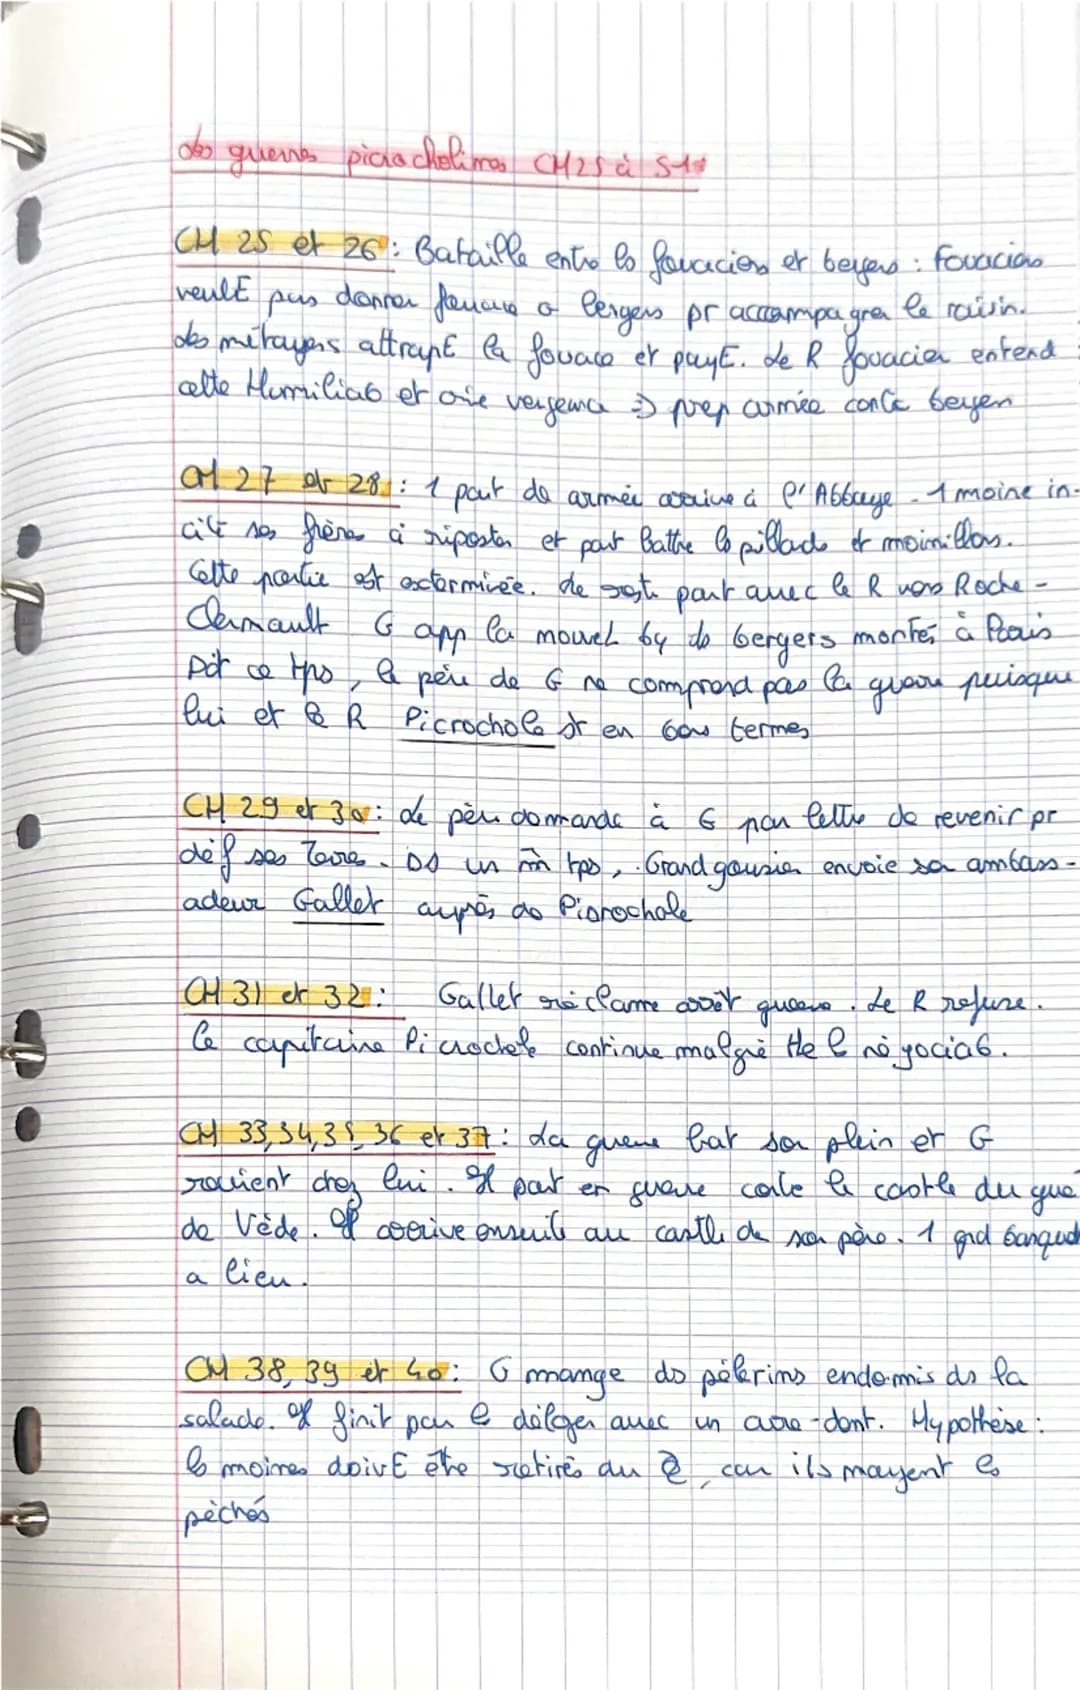 Les guerres picrocholines CH25 à 51
CH 25 et 26 : Bataille entre ls fouaciers et bergers : fouaciers
veulE pas donner fouace à bergers pr accompagner le raisin.
Les métayers attrapE la fouace et payE. Le R fouacier entend
cette Humiliat° et crie vengeance => prep armée contre berger
CH 27 et 28 : 1 part de armée arrive à l'Abbaye. 1 moine in-
cite ses frères à riposter et part battre ls pillards et moinillons.
Cette partie est exterminée. Le reste part avec le R vers Roche-
Clermault G app la nouvel by ds bergers montés à Paris
Pdt ce tps, le père de G ne comprend pas la guerre puisque
lui et le R Picrochole st en bons termes
CH 29 et 30 : Le père demande à G par lettre de revenir pr
déf ses Terres. DS un m̂ tps, Grandgousier envoie sa ambass-
adeur Gallet auprès de Picrochole
CH 31 et 32 : Gallet réclame arrêt guerre. Le R refuse.
le capitaine Picrochole continue malgré tte l négociat°.
CH 33,34,35,36 et 37 : La guerre bat son plein et G
revient chez lui. Il part en guerre contre le castle du gué
de Vède. Il arrive ensuite au castle de son père. 1 grd banquet
a lieu.
CH 38, 39 et 40 : G mange ds pèlerins endormis ds la
salade. Il finit par l déloger avec un cure-dent. Hypothèse :
ls moines doivE être retirés du car ils mangent ls
péchés